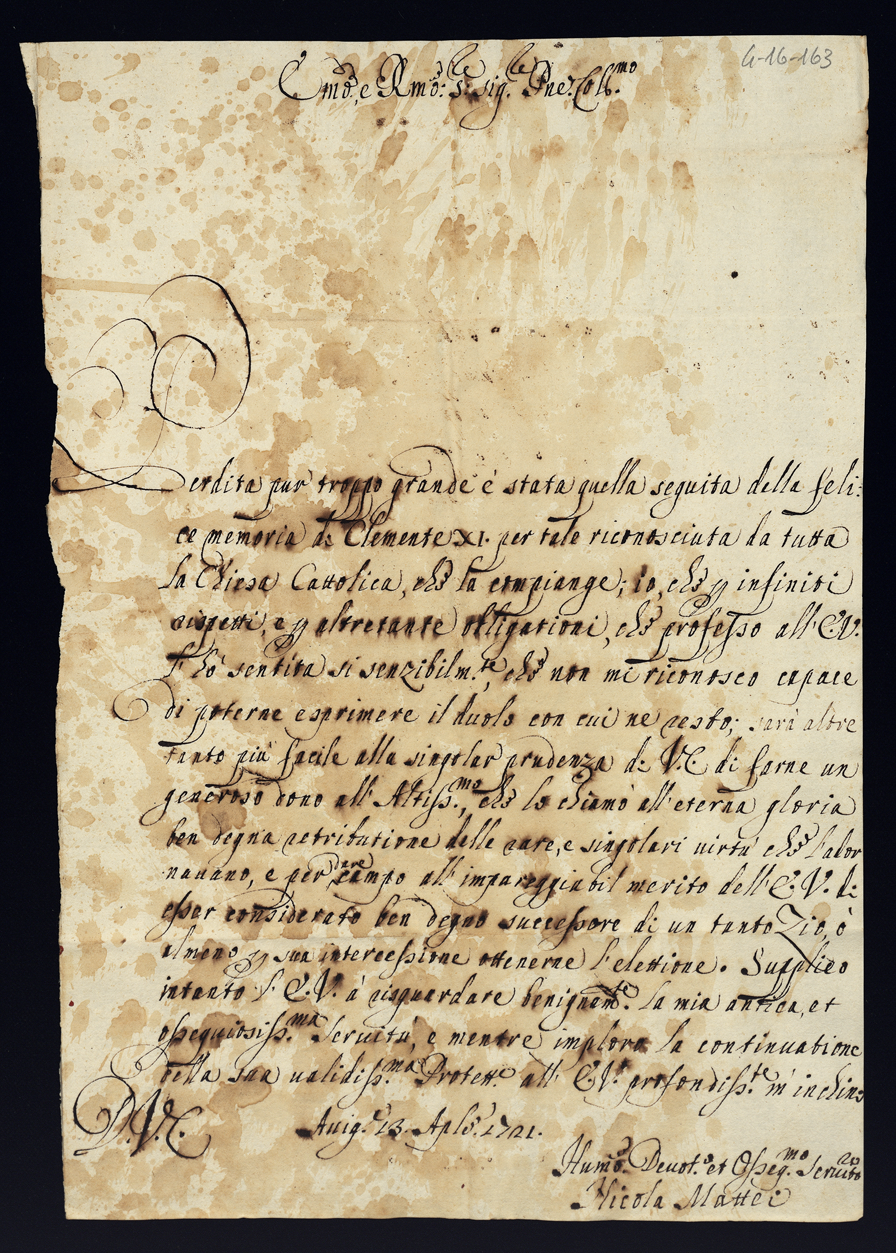 4-16-163
Emo, e Rmo: sre sigre Pne: Collmo
Perdita pur troppo grande è stata quella seguita della feli:
ce memoria di Clemente XI. per tale riconosciuta da tutta
la Chiesa Cattolica, che la compiange; io, che p infiniti
rispetti, e p altretante obligationi, che professo all'E.V.
l'hò sentita si senzibilm.te, che non mi riconosco capace
di poterne esprimere il duolo con cui ne resto; sarà altre
tanto più facile alla singolar prudenza di V.E. di farne un
generoso dono all'Altiss.mo, che lo chiamò all'eterna gloria
ben degna retributione delle rare, e singolari virtù che l'ador
navano, e per dare campo all'impareggiabil merito dell'E.V. di
esser considerato ben degno successore di un tanto Zio, ò
almeno p sua intercessione ottenerne l'elettione. Supplico
intanto l'E.V. à risguardare benignam.te la mia antica, et
ossequiosiss.ma Servitù, e mentre imploro la continuatione
della sua validiss.ma Protett.e all'E.V. profondiss.te m'inchino
D.V.E. Avig.e 13. Aple 1721.
Humo. Devot.o et Osseq.mo Servitore
Nicola Mattei